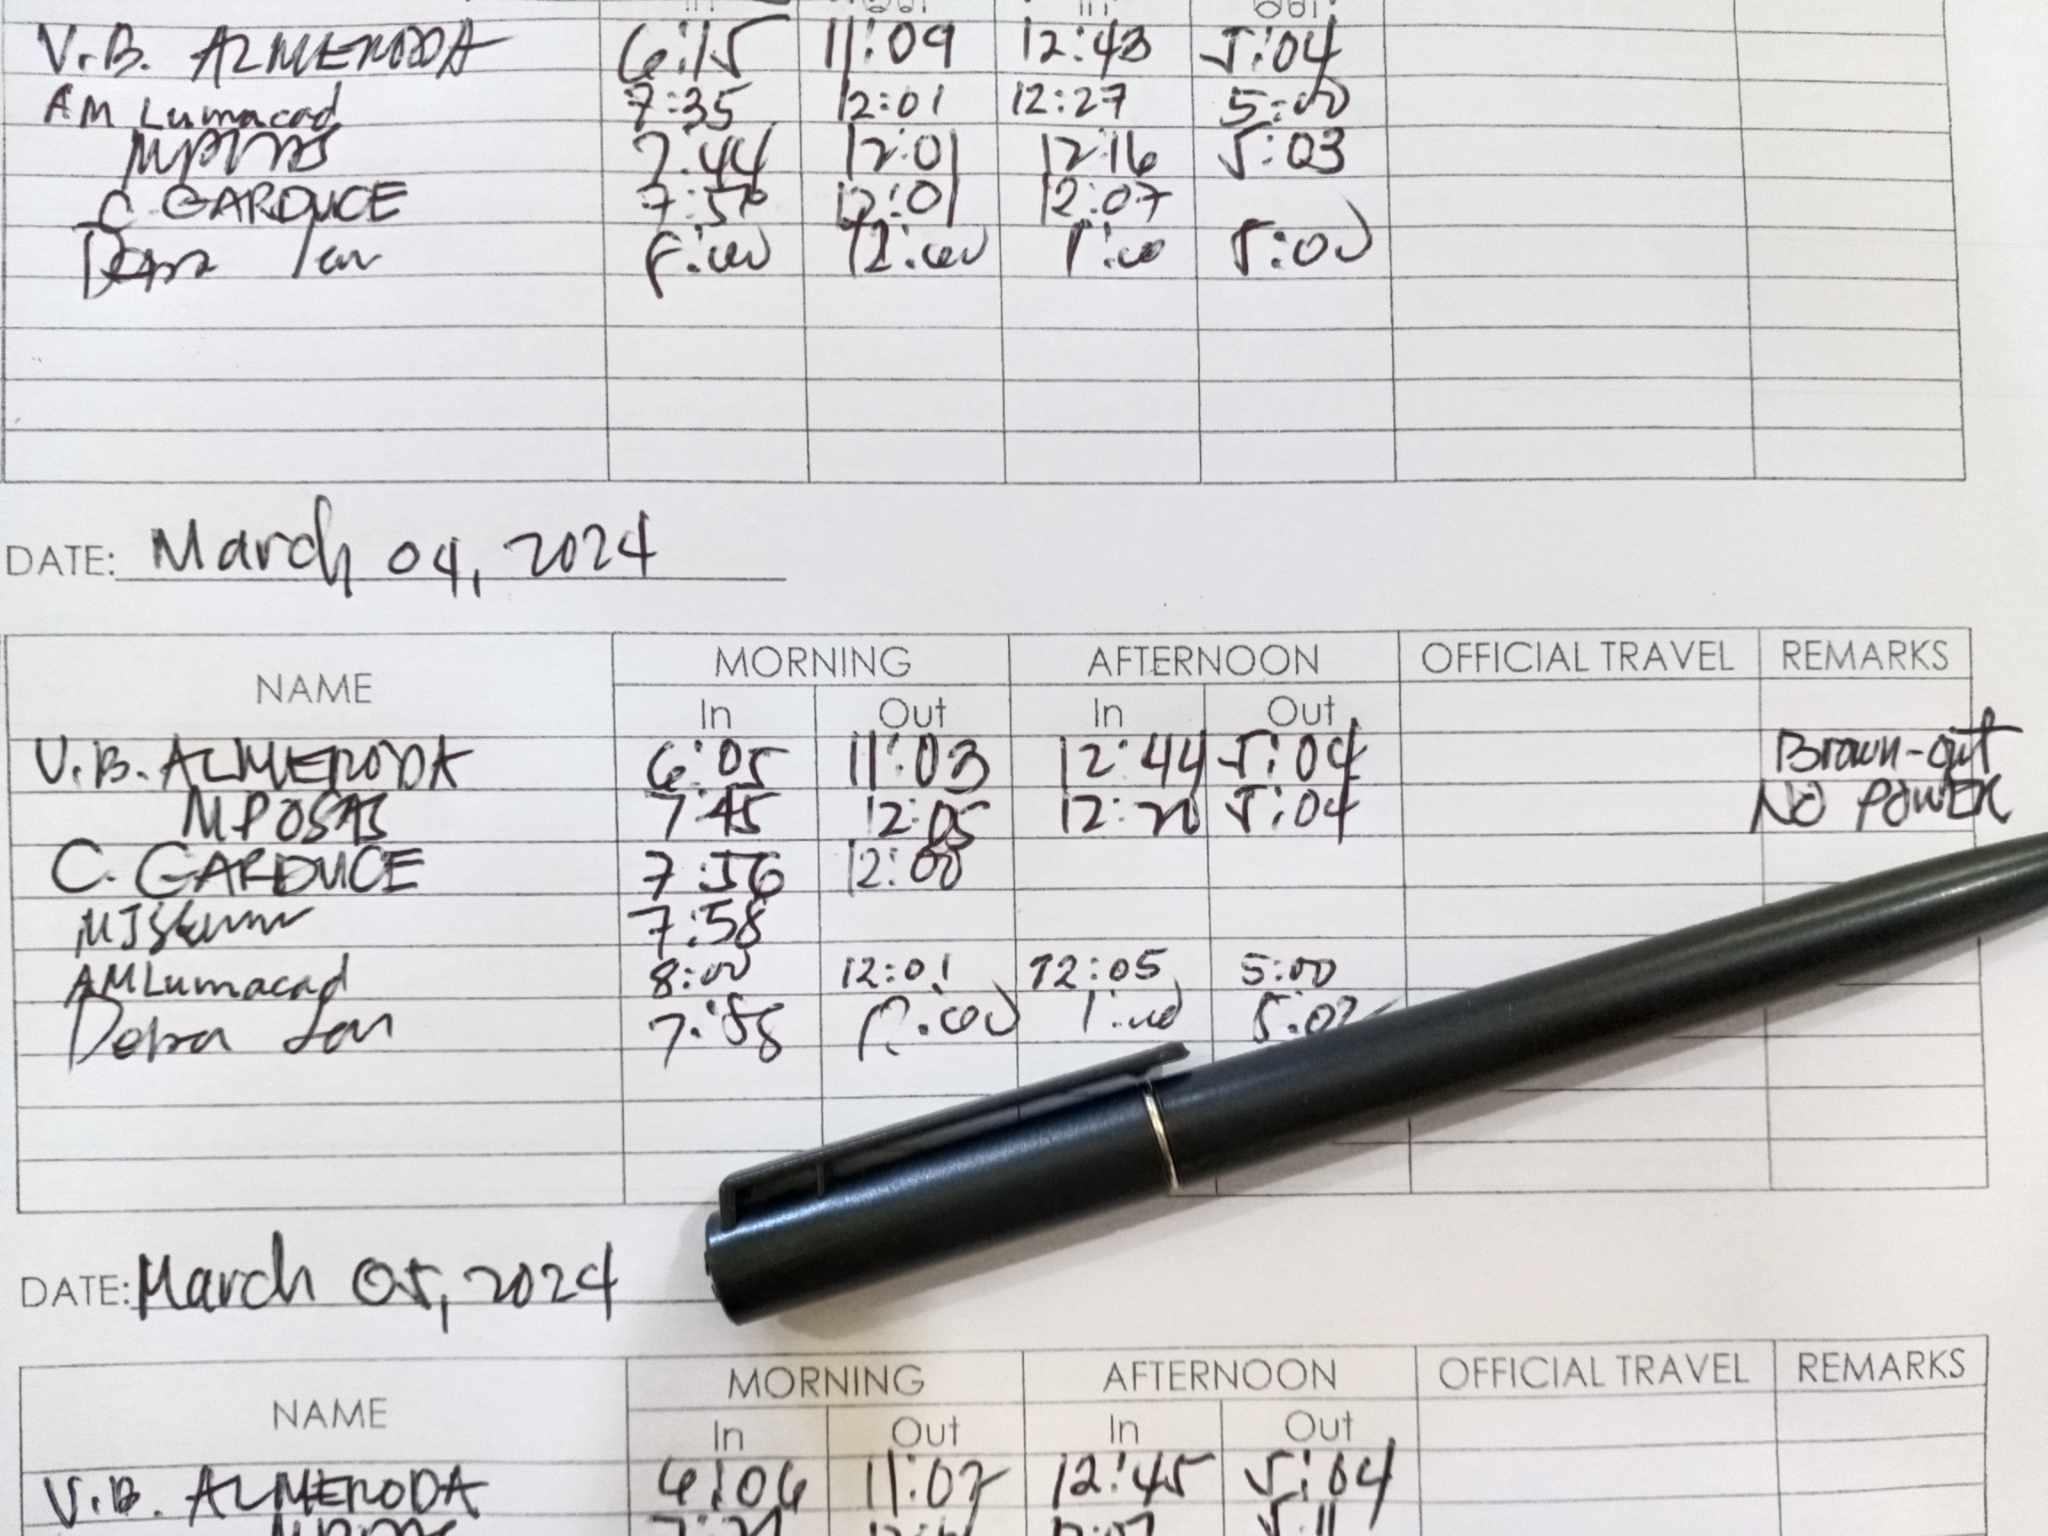 In Out In Out
V.B. ALMERODA 6:15 11:09 12:43 5:04
AM Lumacad 7:35 12:01 12:27 5:00
MPOSAS 7:44 12:01 12:16 5:03
C. GARDUCE 12:01 12:07
8:00 12:00 1:00 5:00
DATE: March 04, 2024
NAME MORNING AFTERNOON OFFICIAL TRAVEL REMARKS
In Out In Out
V.B. ALMERODA 6:05 11:03 12:44 5:04 Brown-out
MPOSAS 7:45 12:05 12:20 5:04 NO POWER
C. GARDUCE 7:56 12:00
7:58
AM Lumacad 8:00 12:01 12:05 5:00
Debra 7:58 12:00 1:00
DATE: March 05, 2024
NAME MORNING AFTERNOON OFFICIAL TRAVEL REMARKS
In Out In Out
V.B. ALMERODA 6:06 11:07 12:45 5:04